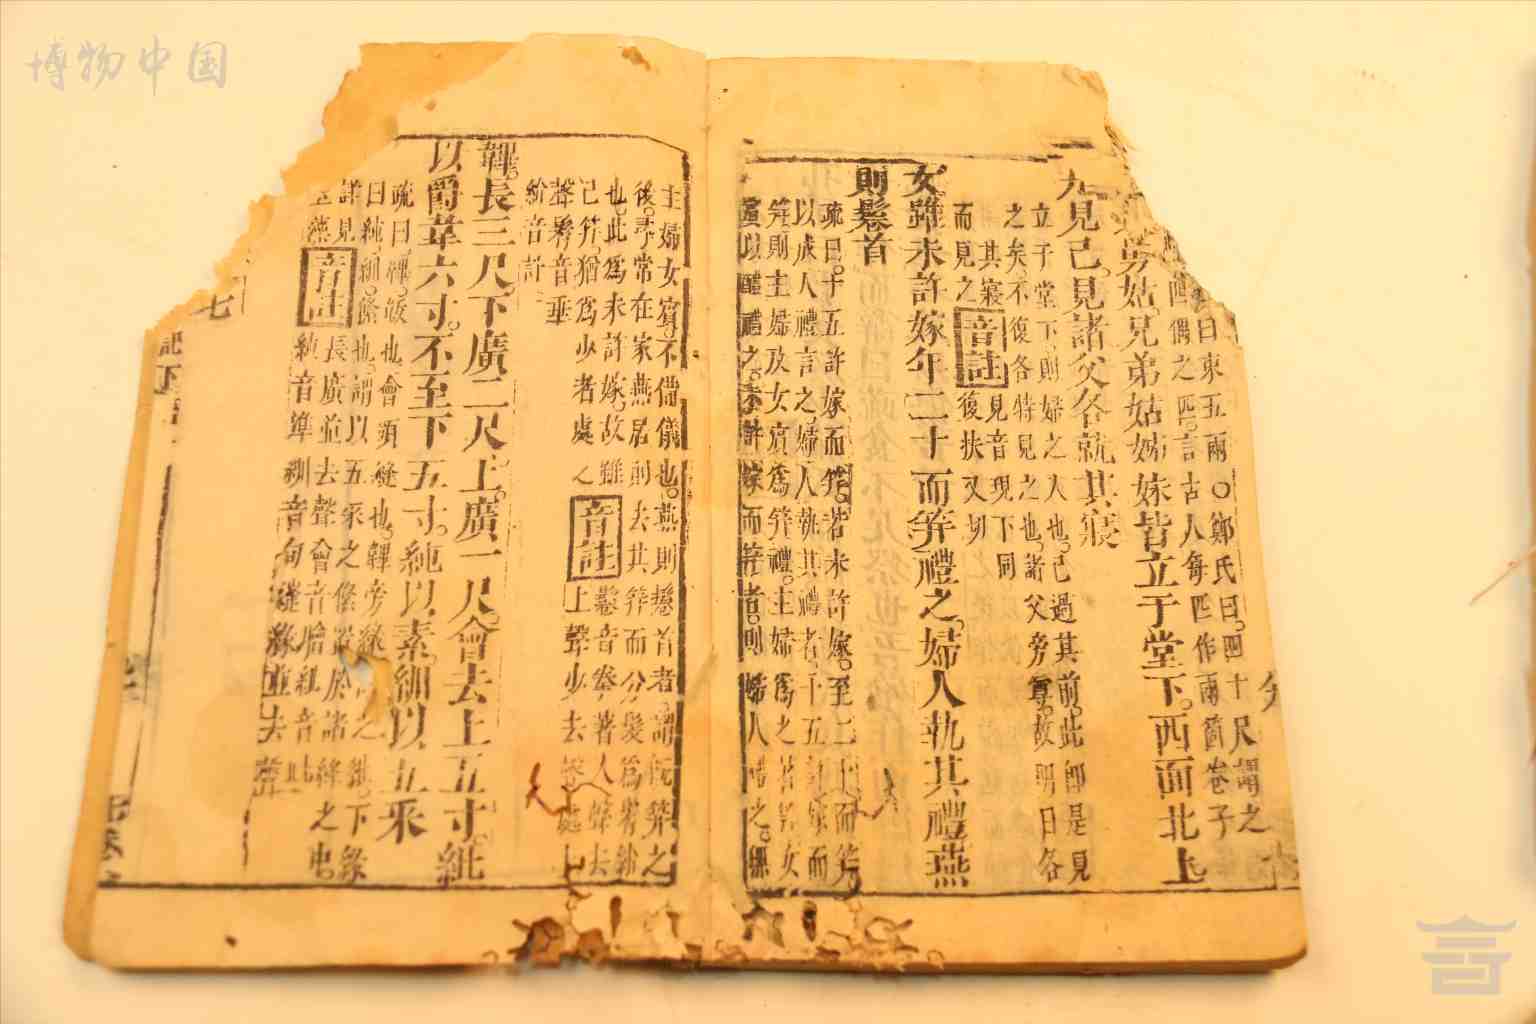 博物中国
曰東五兩○鄭氏曰四十尺謂之
四偶之四言古人每四作兩箇卷子
舅姑兄弟姑姊妹皆立于堂下西面北上
見己見諸父各就其寢
立于堂下則婦之人也已過其前此即是見
之矣不復各特見之也諸父旁尊故明日各
其寢
而見之
音註
見音現下同
復扶又切
女雖未許嫁年二十而笄禮之婦人執其禮燕
則鬈首
疏曰十五許嫁而笄若未許嫁至二十而笄
以成人禮言之婦人執其禮者十五許嫁而
笄則主婦及女賓爲笄禮主婦爲之著笄女
賓以醴禮之未許嫁而笄者則婦人禮之無
主婦女賓不備儀也燕則鬈首者謂旣笄之
後尋常在家燕居則去其笄而分髮爲髾紒
也此爲未許嫁故雖
己笄猶爲少者處之
音註
鬈音拳著入聲去
上聲少去聲處上
聲髾音垂
紒音計
韠長三尺下廣二尺上廣一尺會去上五寸紕
以爵韋六寸不至下五寸純以素紃以五采
疏曰韠韍也會領縫也韠旁緣謂之紕下緣
曰純紃絛也謂以五采之絛置於諸縫之中
詳見
玉藻
音註
長廣並去聲會音膾紕音
純音準紃音旬縫緣並去聲
七
記下